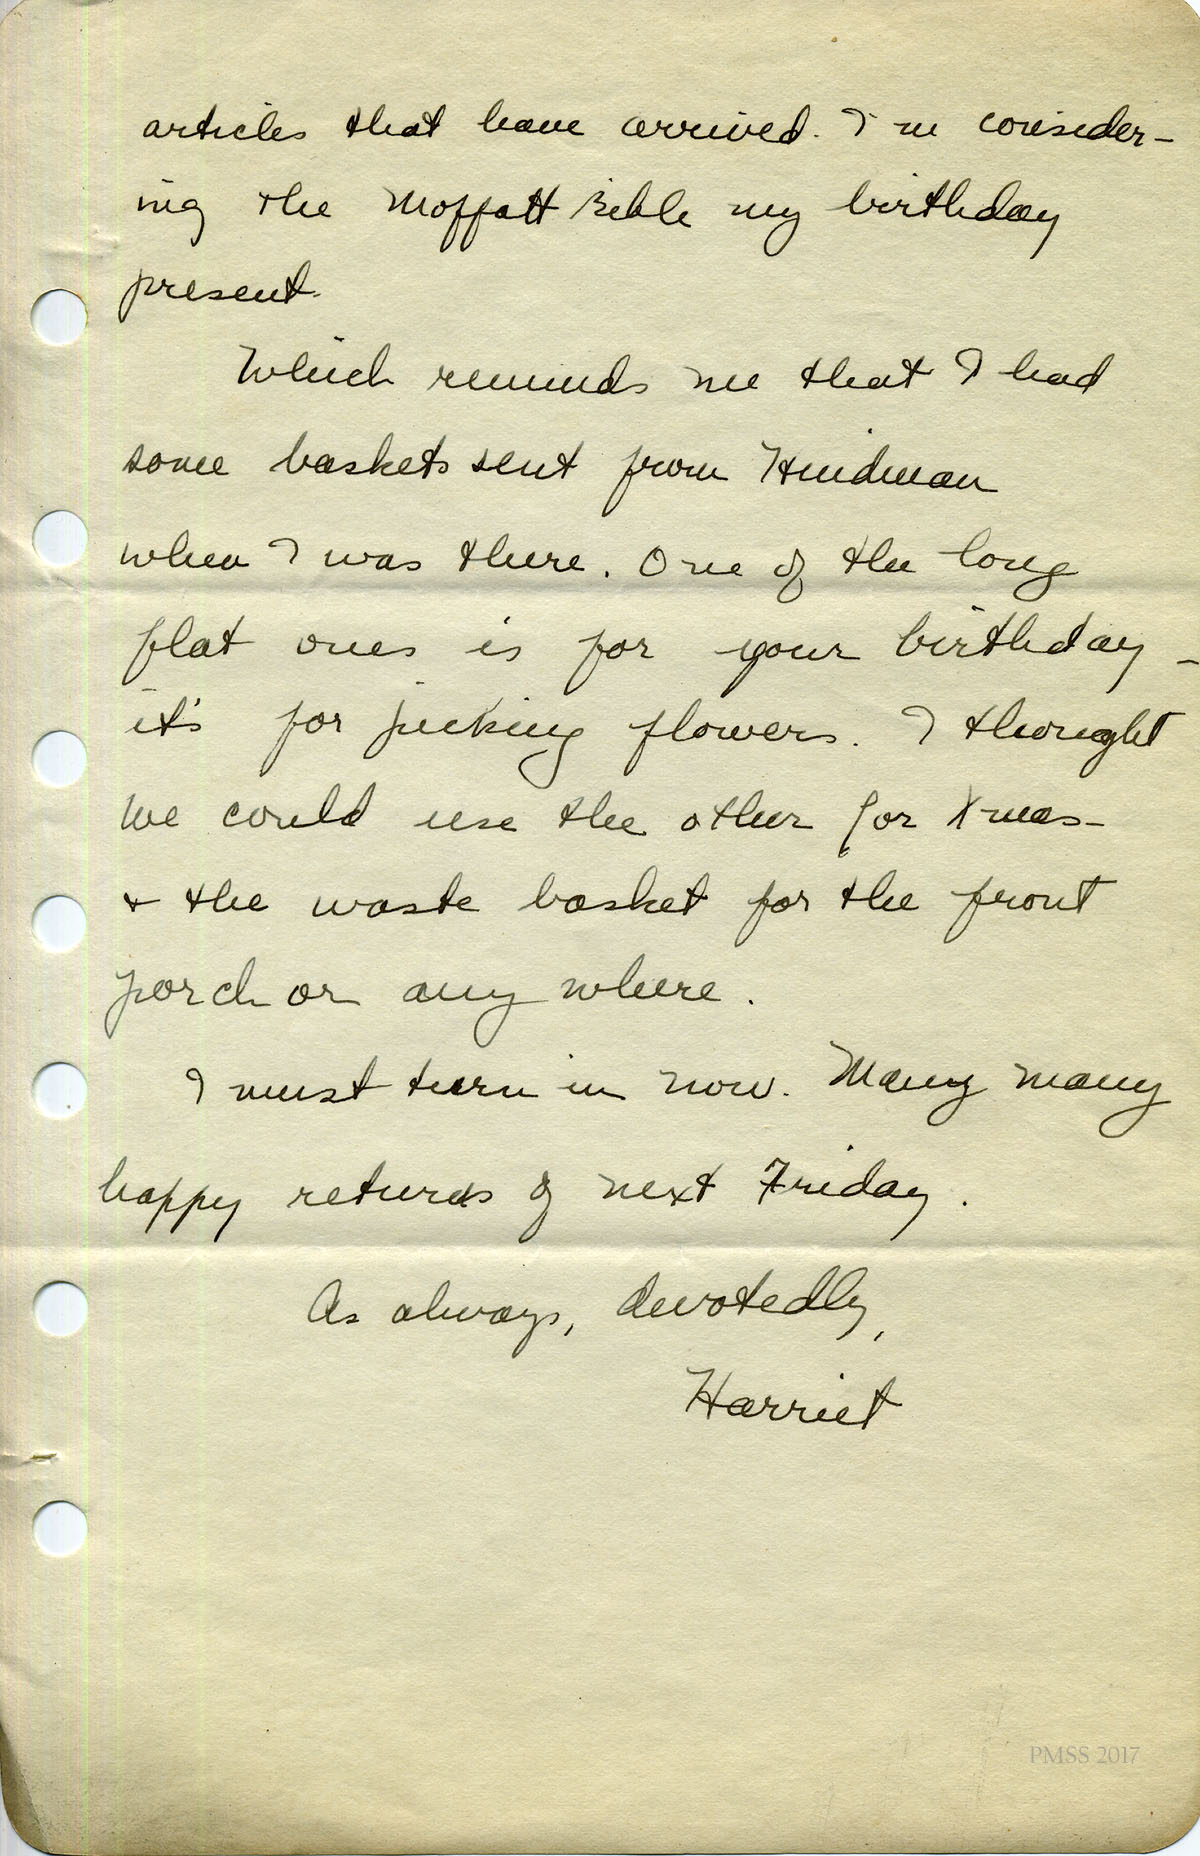 articles that have arrived. I'm consider-
ing the Moffatt Bible my birthday
present.
Which reminds me that I had
some baskets sent from Hindman
when I was there. One of the long
flat ones is for your birthday -
it's for picking flowers. I thought
we could use the other for Xmas -
+ the waste basket for the front
porch or any where.
I must turn in now. Many many
happy returns of next Friday.
As always, devotedly,
Harriet
PMSS 2017